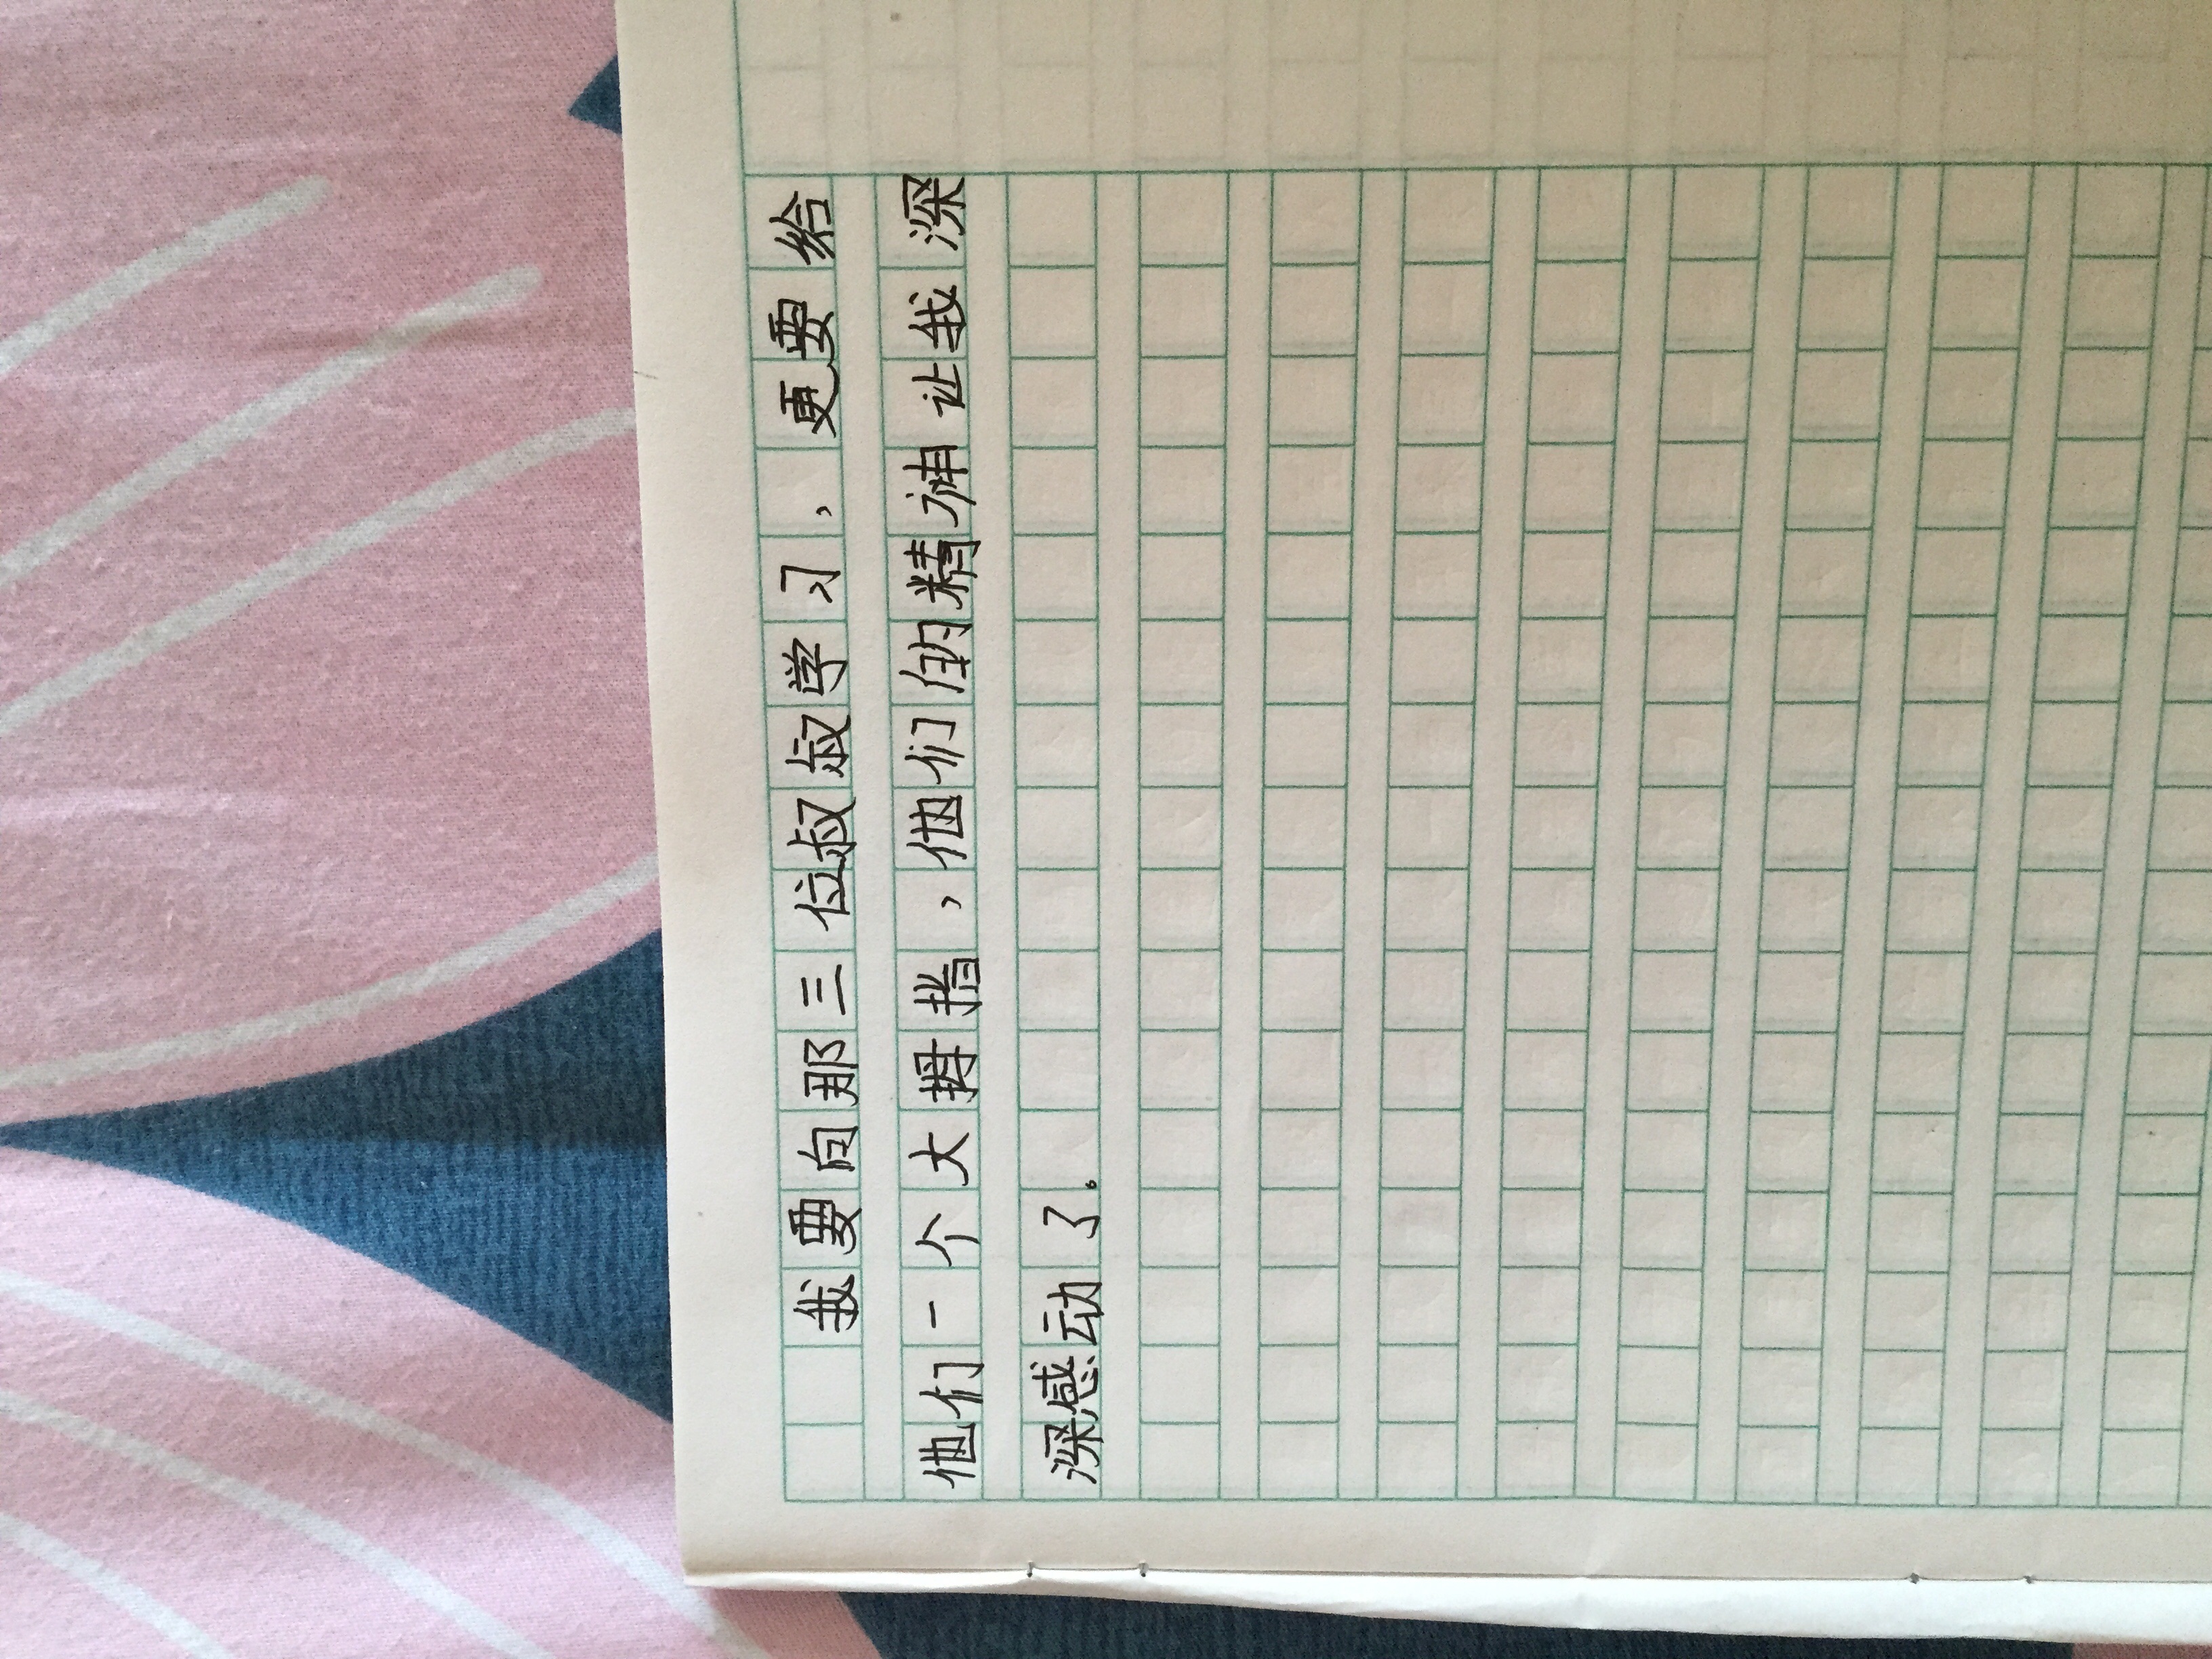 我要向那三位叔叔学习，更要给
他们一个大拇指，他们的精神让我深
深感动了。